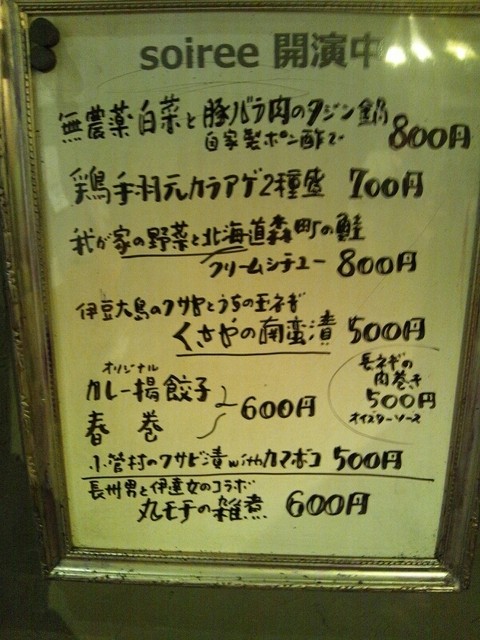 soiree 開演中
無農薬白菜と豚バラ肉のタジン鍋
自家製ポン酢で 800円
鶏手羽元カラアゲ2種盛 700円
我が家の野菜と北海道森町の鮭
クリームシチュー 800円
伊豆大島のクサヤとうちの玉ネギ
くさやの南蛮漬 500円
オリジナル
カレー揚餃子
春巻 600円
長ネギの
肉巻き
500円
オイスターソース
小菅村のワサビ漬withカマボコ 500円
長州男と伊達女のコラボ
丸モチの雑煮 600円